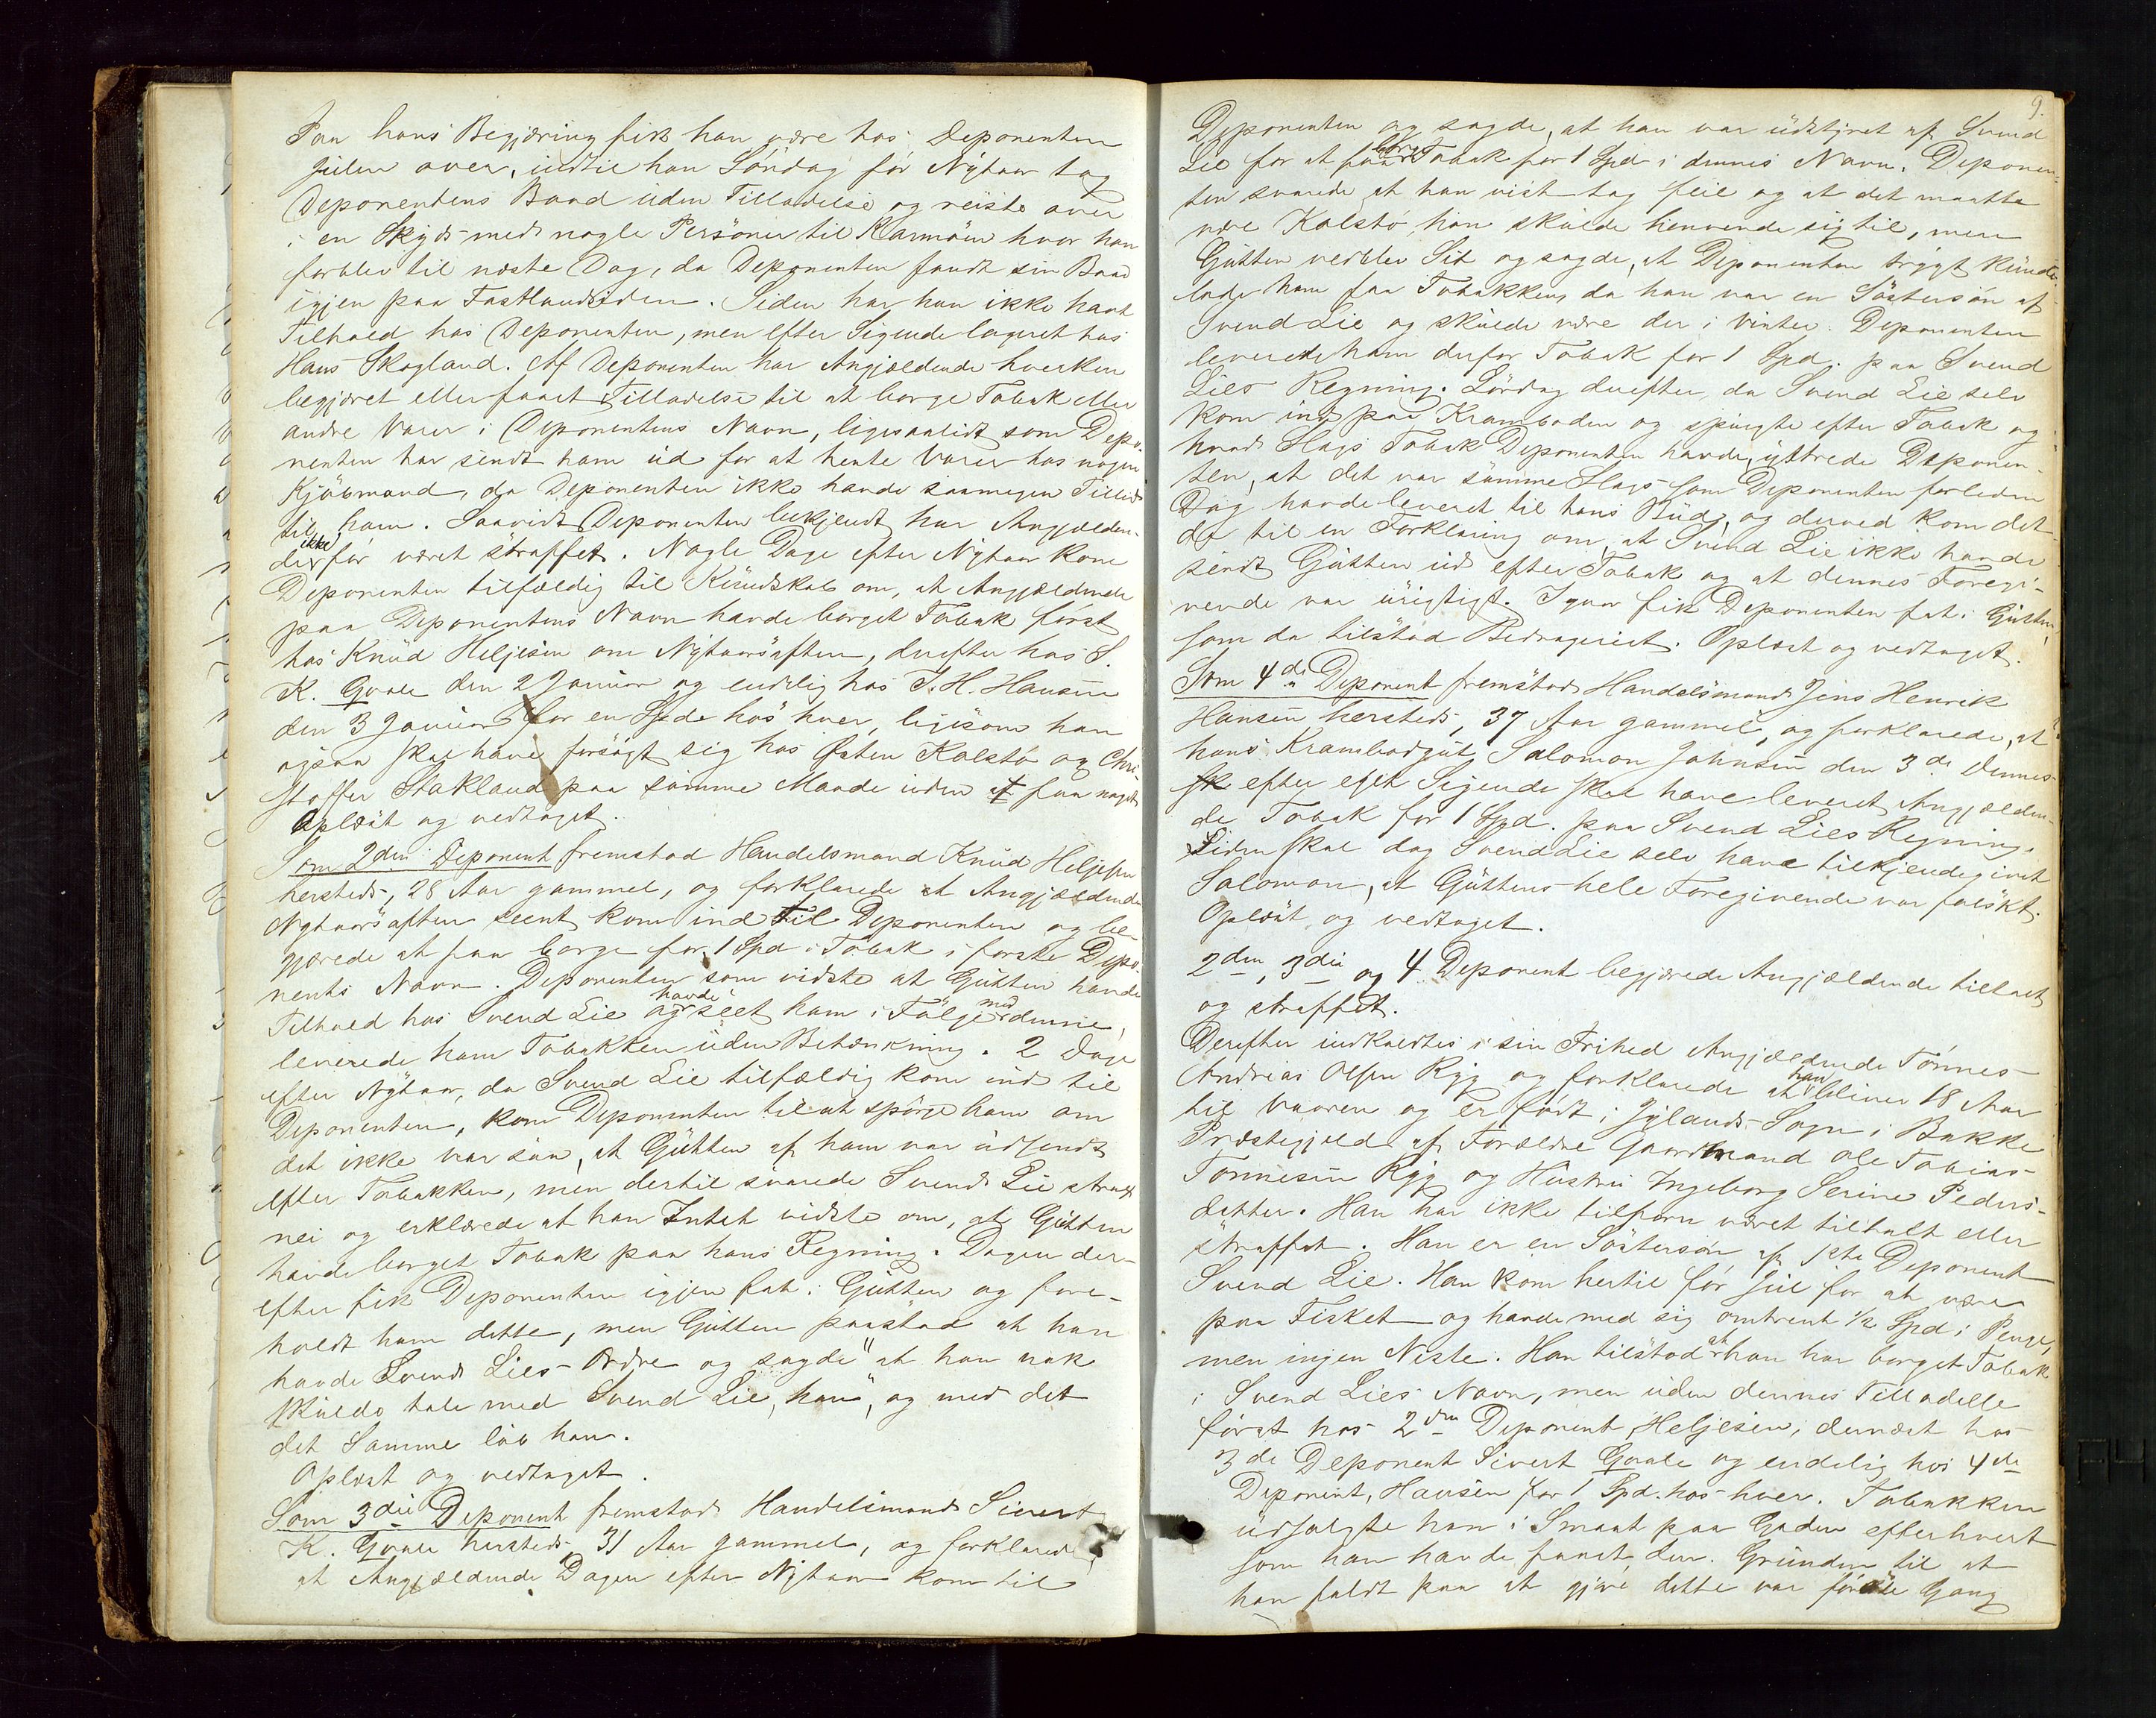 Paa hans Begjæring fik han være hos Deponenten
Julen over, indtil han Söndag för Nytaar tog
Deponentens Baad uden Tilladelse og reiste over
i en Skyds med nogle Personer til Karmöen hvor han
forblev til næste Dag, da Deponenten fandt sin Baad
igjen paa Fastlandsiden. Siden har han ikke havt
Tilhold hos Deponenten, men efter Sigende logeret hos
Hans Skogland. Af Deponenten har Angjældende hverken
begjæret eller faaet Tilladelse til at borge Tobak eller
andre Varer i Deponentens Navn, ligesaalidt som Depo-
nenten har sendt ham ud for at hente Varer hos nogen
Kjöbmand, da Deponenten ikke havde saamegen Tillid
til ham. Saavidt Deponenten bekjendt har Angjælden-
de ikke för været straffet. Nogle Dage efter Nytaar kom
Deponenten tilfældig til Kundskab om, at Angjældende
paa Deponentens Navn havde borget Tobak först
hos Knud Heljesen om Nytaarsaften, derefter hos S.
K. Qvale den 2 Januar og endelig hos J. H. Hansen
den 3 Januar for en Spd hos hver, ligesom han
ogsaa skal have forsögt sig hos Østen Kolstö og Chri-
stoffer Stakland paa samme Maade uden at faa noget.
Oplæst og vedtaget.
Som 2den Deponent fremstod Handelsmand Knud Heljesen
hersteds, 28 Aar gammel, og forklarede at Angjældende
Nytaarsaften seent kom ind til Deponenten og be-
gjærede at faa borge for 1 Spd i Tobak i förste Depo-
nents Navn. Deponenten som vidste at Gutten havde
Tilhold hos Svend Lie og havde seet ham i Fölge med denne,
leverede ham Tobakken uden Betænkning. 2 Dage
efter Nytaar, da Svend Lie tilfældig kom ind til
Deponenten, kom Deponenten til at spörge ham om
det ikke var saa, at Gutten af ham var udsendt
efter Tobakken, men dertil svarede Svend Lie strax
nei og erklærede at han Intet vidste om, at Gutten
havde borget Tobak paa hans Regning. Dagen der-
efter fik Deponenten igjen fat i Gutten og fore-
holdt ham dette, men Gutten paastod at han
havde Svend Lies Ordre og sagde "at han nok
skulde tale med Svend Lie, han", og med det
det Samme löb han.
Oplæst og vedtaget.
Som 3die Deponent fremstod Handelsmand Sivert
K. Qvale hersteds 31 Aar gammel, og forklarede,
at Angjældende Dagen efter Nytaar kom til
9.
Deponenten og sagde, at han var udstyret af Svend
Lie for at faa borge Tobak for 1 Spd i dennes Navn. Deponen-
ten svarede at han vist tog feil og at det maatte
være Kolstö, han skulde henvende sig til, men
Gutten vedblev Sit og sagde, at Deponenten trygt kunde
lade ham faa Tobakken, da han var en Söstersön af
Svend Lie og skulde være der i Vinter. Deponenten
leverede ham derfor Tobak for 1 Spd. paa Svend
Lies Regning. Lördag derefter, da Svend Lie selv
kom ind paa Kramboden og spurgte efter Tobak og
hvad Slags Tobak Deponenten havde, yttrede Deponen-
ten, at det var samme Slags som Deponenten forleden
Dag havde leveret til hans Bud, og derved kom det
da til en Forklaring om, at Svend Lie ikke havde
sendt Gutten ud efter Tobak og at dennes Foregi-
vende var urigtigt. Igaar fik Deponenten fat i Gutten,
som da tilstod Bedrageriet. Oplæst og vedtaget.
Som 4de Deponent fremstod Handelsmand Jens Henrik
Hansen hersteds, 37 Aar gammel, og forklarede, at
hans Krambodgut Salomon Johnsen den 3de dennes
efter eget Sigende skal have leveret Angjælden-
de Tobak for 1 Spd. paa Svend Lies Regning.
Siden skal dog Svend Lie selv have tilkjendegivet
Salomon, at Guttens hele Foregivende var falskt.
Oplæst og vedtaget.
2den, 3die og 4 Deponent begjærede Angjældende tiltalt
og straffet.
Derefter indkaldtes i sin Frihed Angjældende Tönnes
Andreas Olsen Ryg og forklarede at han bliver 18 Aar
til Vaaren og er födt i Jylands Sogn i Bakke
Præstegjeld af Forældre Gaardmand Ole Tobias
Tönnesen Ryg og Hustru Ingeborg Serine Peders-
datter. Han har ikke tilforn været tiltalt eller
straffet. Han er en Söstersön af 1ste Deponent
Svend Lie. Han kom hertil för Jul for at være
paa Fisket og havde med sig omtrent 1/2 Spd i Penge,
men ingen Niste. Han tilstod at han har borget Tobak
i Svend Lies Navn, men uden dennes Tilladelse
först hos 2den Deponent Heljesen, dernæst hos
3de Deponent Sivert Qvale og endelig hos 4de
Deponent, Hansen for 1 Spd. hos hver. Tobakken
udsolgte han i Smaat paa Gaden efterhvert
som han havde faaet den. Grunden til at
han faldt paa at gjöre dette var förste Gang